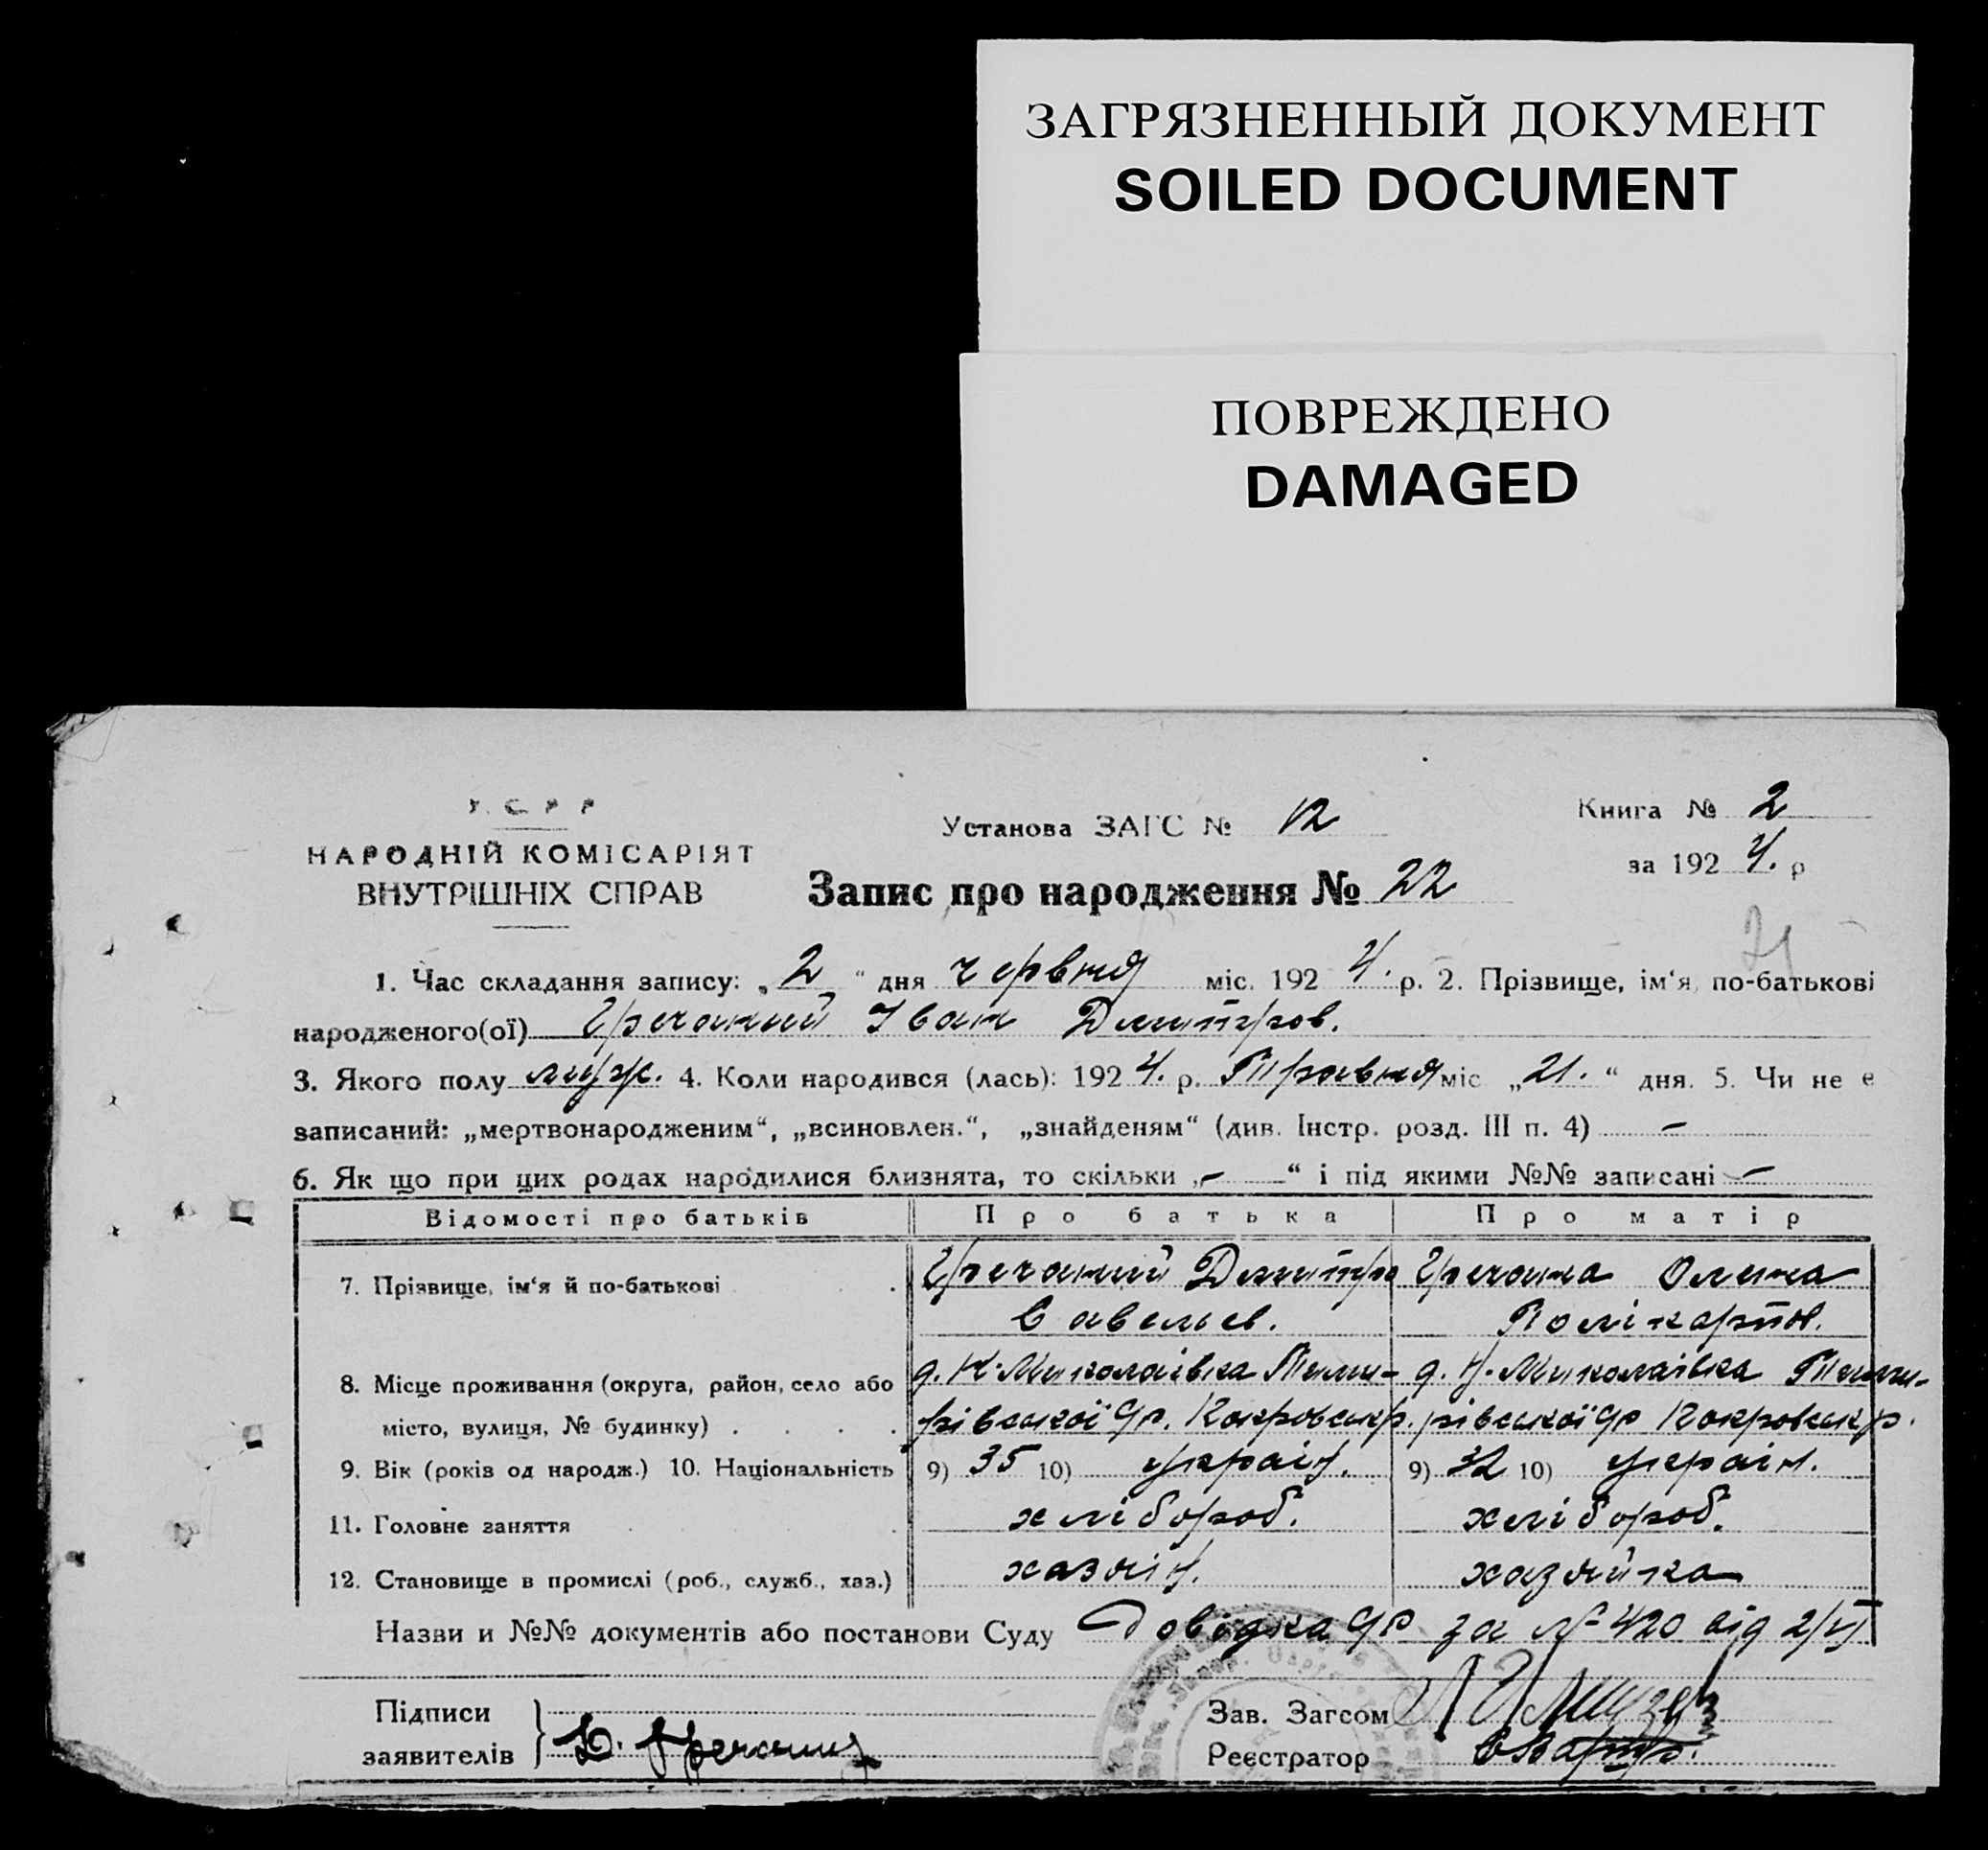 ЗАГРЯЗНЕННЫЙ ДОКУМЕНТ
SOILED DOCUMENT
ПОВРЕЖДЕНО
DAMAGED
У.С.Р.Р
НАРОДНІЙ КОМІСАРІЯТ
ВНУТРІШНІХ СПРАВ
Установа ЗАГС № 12
Книга № 2
за 1924. р
Запис про народження № 22
1. Час складання запису: „2“ дня червня міс. 1924. р. 2. Прізвище, ім‘я, по-батькові
народженого(ої) Гречаний Іван Дмитров.
3. Якого полу муж. 4. Коли народився (лась): 1924. р. Травня міс „21.“ дня. 5. Чи не є
записаний: „мертвонародженим“, „всиновлен.“, „знайденям“ (див. Інстр. розд. III п. 4) –
6. Як що при цих родах народилися близнята, то скільки „–“ і під якими №№ записані –
Відомості про батьків Про батька Про матір
7. Прізвище, ім‘я й по-батькові Гречаний Дмитро Гречана Олена
Савельев. Полікарпов.
8. Місце проживання (округа, район, село або д. Н-Миколаівка д. Н-Миколаівка
місто, вулиця, № будинку) Покровськ р. Покровськ р.
9. Вік (років од народж.) 10. Національність 9) 35 10) украін. 9) 32 10) украін.
11. Головне заняття хлібороб. хлібороб.
12. Становище в промислі (роб., служб., хаз.) хазяін. хазяйка
Назви и №№ документів або постанови Суду Довідка за № 420 від 2/VI
Підписи
заявителів Д. Гречаний
Зав. Загсом
Реєстратор